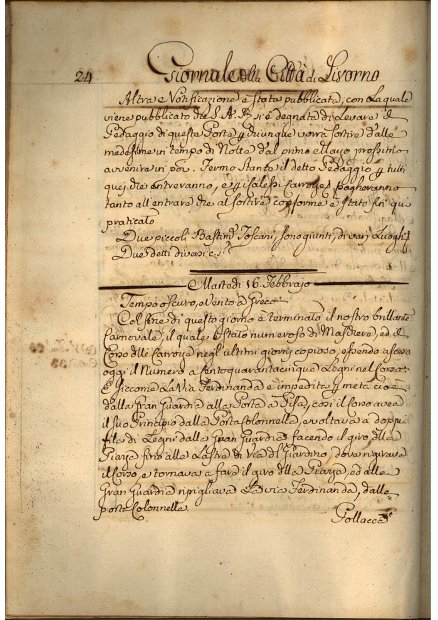 24 Giornale della Città di Livorno
Altra e Notificazione è Stata pubblicata, con la quale
viene pubblicato che S. A. R. si è degnata di Levare il
Pedaggio di questa Porta p chiunque vorrà sortire dalle
medesime in tempo di Notte dal primo Marzo prossimo
avvenire in poi. Fermo Stante il detto Pedaggio p tutti
quei che entreranno, e i Calessi Carrozze pagheranno
tanto all'entrare che al sortire conforme è Stato fin' qui
praticato
Due piccoli Bastim. Toscani, sono giunti, di vari Luoghi
Due detti di
Martedì 16 Febbrajo
Tempo oscuro, e Vento a Greco
Col fine di questo giorno è terminato il nostro brillante
Carnevale, il quale è Stato numeroso di Maschere, ed il
Corso delle Carrozze negli ultimi giorni copioso, essendo asceso
oggi il Numero a Centoquarantacinque Legni nel Corso
E siccome La Via Ferdinanda è impedita p metà cioè
dalla Gran Guardia alla Porta a Pisa, così il Corso avea
il Suo Principio dalla Porta Colonnella, e voltava a doppie
file di Legni dalla Gran Guardia facendo il giro della
Piazza fino alla Lastra di Via del Giardino, dove rigirava
il Corso, e tornava a fare il giro della Piazza, ed alla
Gran Guardia ripigliava La via Ferdinanda, dalla
porta Colonnella